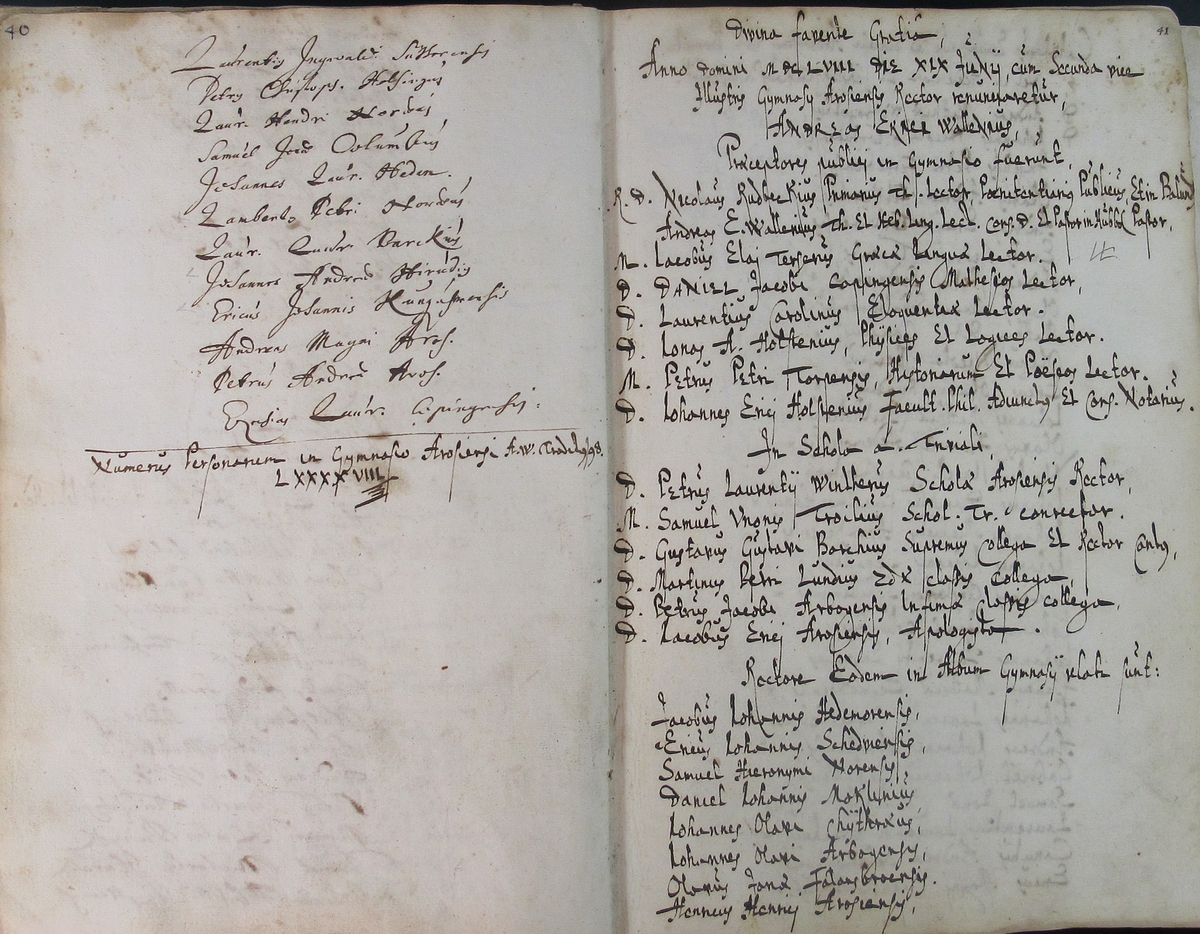 40
Laurentius Ingevaldi
Petrus Christoph. Helsingus
Laur. Hendri Nordus
Samuel Jonae Columbus
Johannes Laur. Hedin.
Lambertus Petri Nordus
Laur. Laur. Barckius
Johannes Andreae
Ericus Johannis
Andreas Magni Aros.
Petrus Andreae Aros.
Laur. Cöpingensis.
Numerus Personarum in Gymnasio Arosiensi
LXXXXVIII
41
Divina favente Gratia,
Anno Domini MDCLVIII DIE XIX Junij cum Secunda vice
Illustris Gymnasij Arosiensis Rector renunciaretur,
ANDREAS ERICI Wallenius,
Praeceptores publici in Gymnasio fuerunt,
R. D. Nicolaus Rudbeckius Primarius Th. Lector, Poenitentiarius Publicus, Et in
Andreas E. Wallenius Th. Et Heb. Ling. Lect. Cons. D. Et Pastor in Pastor,
M. Iacobus Elaj Terserus Graecae Linguae Lector.
D. DANIEL Jacobi Copingensis Matheseos Lector,
D. Laurentius Carolinus Eloquentiae Lector.
D. Ionas H. Holstenius, Physices Et Logices Lector.
M. Petrus Petri Torpensis, Historiarum Et Poëseos Lector.
D. Iohannes Erici Holstenius Facult. Phil. Adiunctus Et Cons. Notarius.
In Schola Triviali,
D. Petrus Laurentij Wintherus Scholae Arosiensis Rector,
M. Samuel Unonis Troilius Schol. Tr. conrector.
D. Gustavus Gustavi Barchius Supremus Collega Et Rector Cantus,
D. Martinus Petri Lundius 2dae classis Collega,
D. Petrus Jacobi Arbogensis Infimae classis collega,
D. Iacobus Erici Arosiensis, Apologista.
Rectore Eodem in Album Gymnasij relati sunt:
Jacobus Iohannis Hedemorensis,
Ericus Iohannis Schedviensis,
Samuel Hieronymi Norensis,
Daniel Iohannis Moklinius,
Iohannes Olavi Chythraeus,
Iohannes Olavi Arbogensis,
Olavus Jonae
Henricus Henrici Arosiensis,